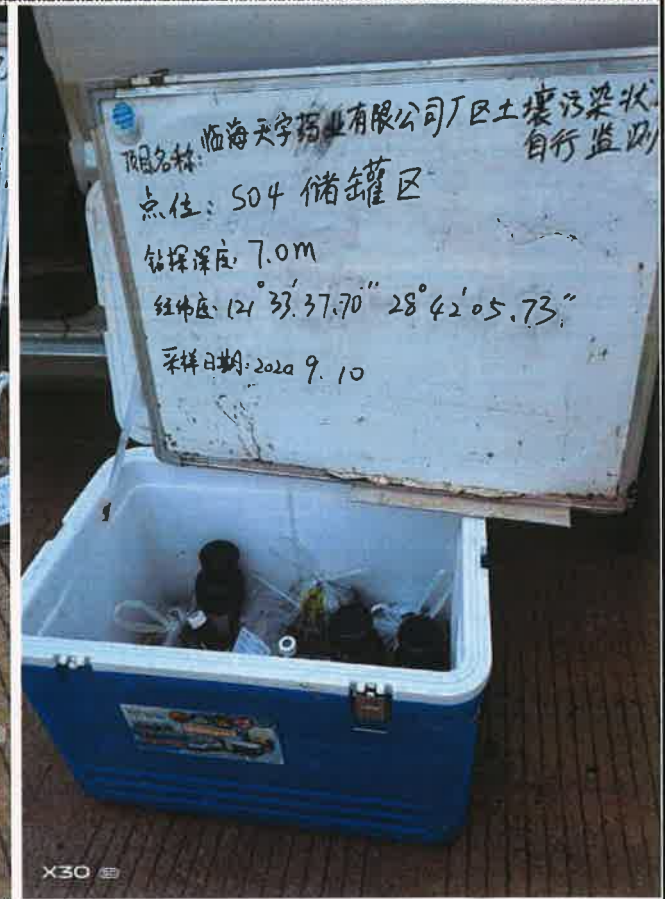 项目名称: 临海天宇药业有限公司厂区土壤污染状
自行监测
点位: S04 储罐区
钻探深度: 7.0m
经纬度: 121° 33' 37.70" 28° 42' 05.73"
采样日期: 2020 9. 10
X30